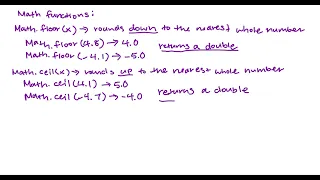 Math functions:
Math.floor(x) → rounds down to the nearest whole number
Math.floor(4.8) → 4.0 returns a double
Math.floor(-4.1) → -5.0
Math.ceil(x) → rounds up to the nearest whole number
Math.ceil(4.1) → 5.0
Math.ceil(-4.7) → -4.0 returns a double